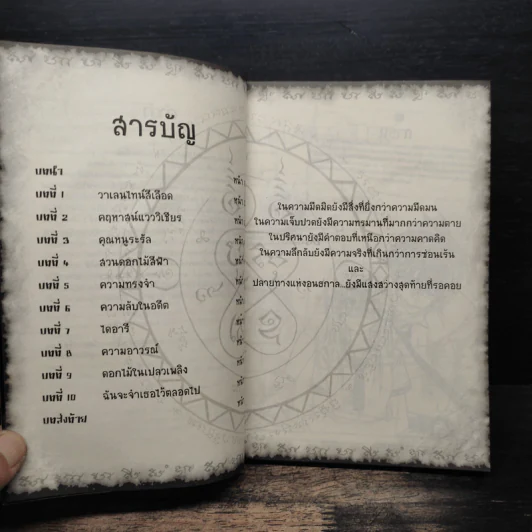 สารบัญ
บทนำ หน้า
บทที่ 1 วาเลนไทน์สีเลือด
บทที่ 2 คฤหาสน์แวววิเชียร
บทที่ 3 คุณหนูระรัล
บทที่ 4 สวนดอกไม้สีฟ้า
บทที่ 5 ความทรงจำ
บทที่ 6 ความลับในอดีต
บทที่ 7 ไดอารี่
บทที่ 8 ความอาวรณ์
บทที่ 9 ดอกไม้ในเปลวเพลิง
บทที่ 10 ฉันจะจำเธอไว้ตลอดไป
บทส่งท้าย
ในความมืดมิดยังมีสิ่งที่ยิ่งกว่าความมืดมน
ในความเจ็บปวดยังมีความทรมานที่มากกว่าความตาย
ในปริศนายังมีคำตอบที่เหนือกว่าความคาดคิด
ในความลึกลับยังมีความจริงที่เกินกว่าการซ่อนเร้น
และ
ปลายทางแห่งอนธกาล...ยังมีแสงสว่างสุดท้ายที่รอคอย